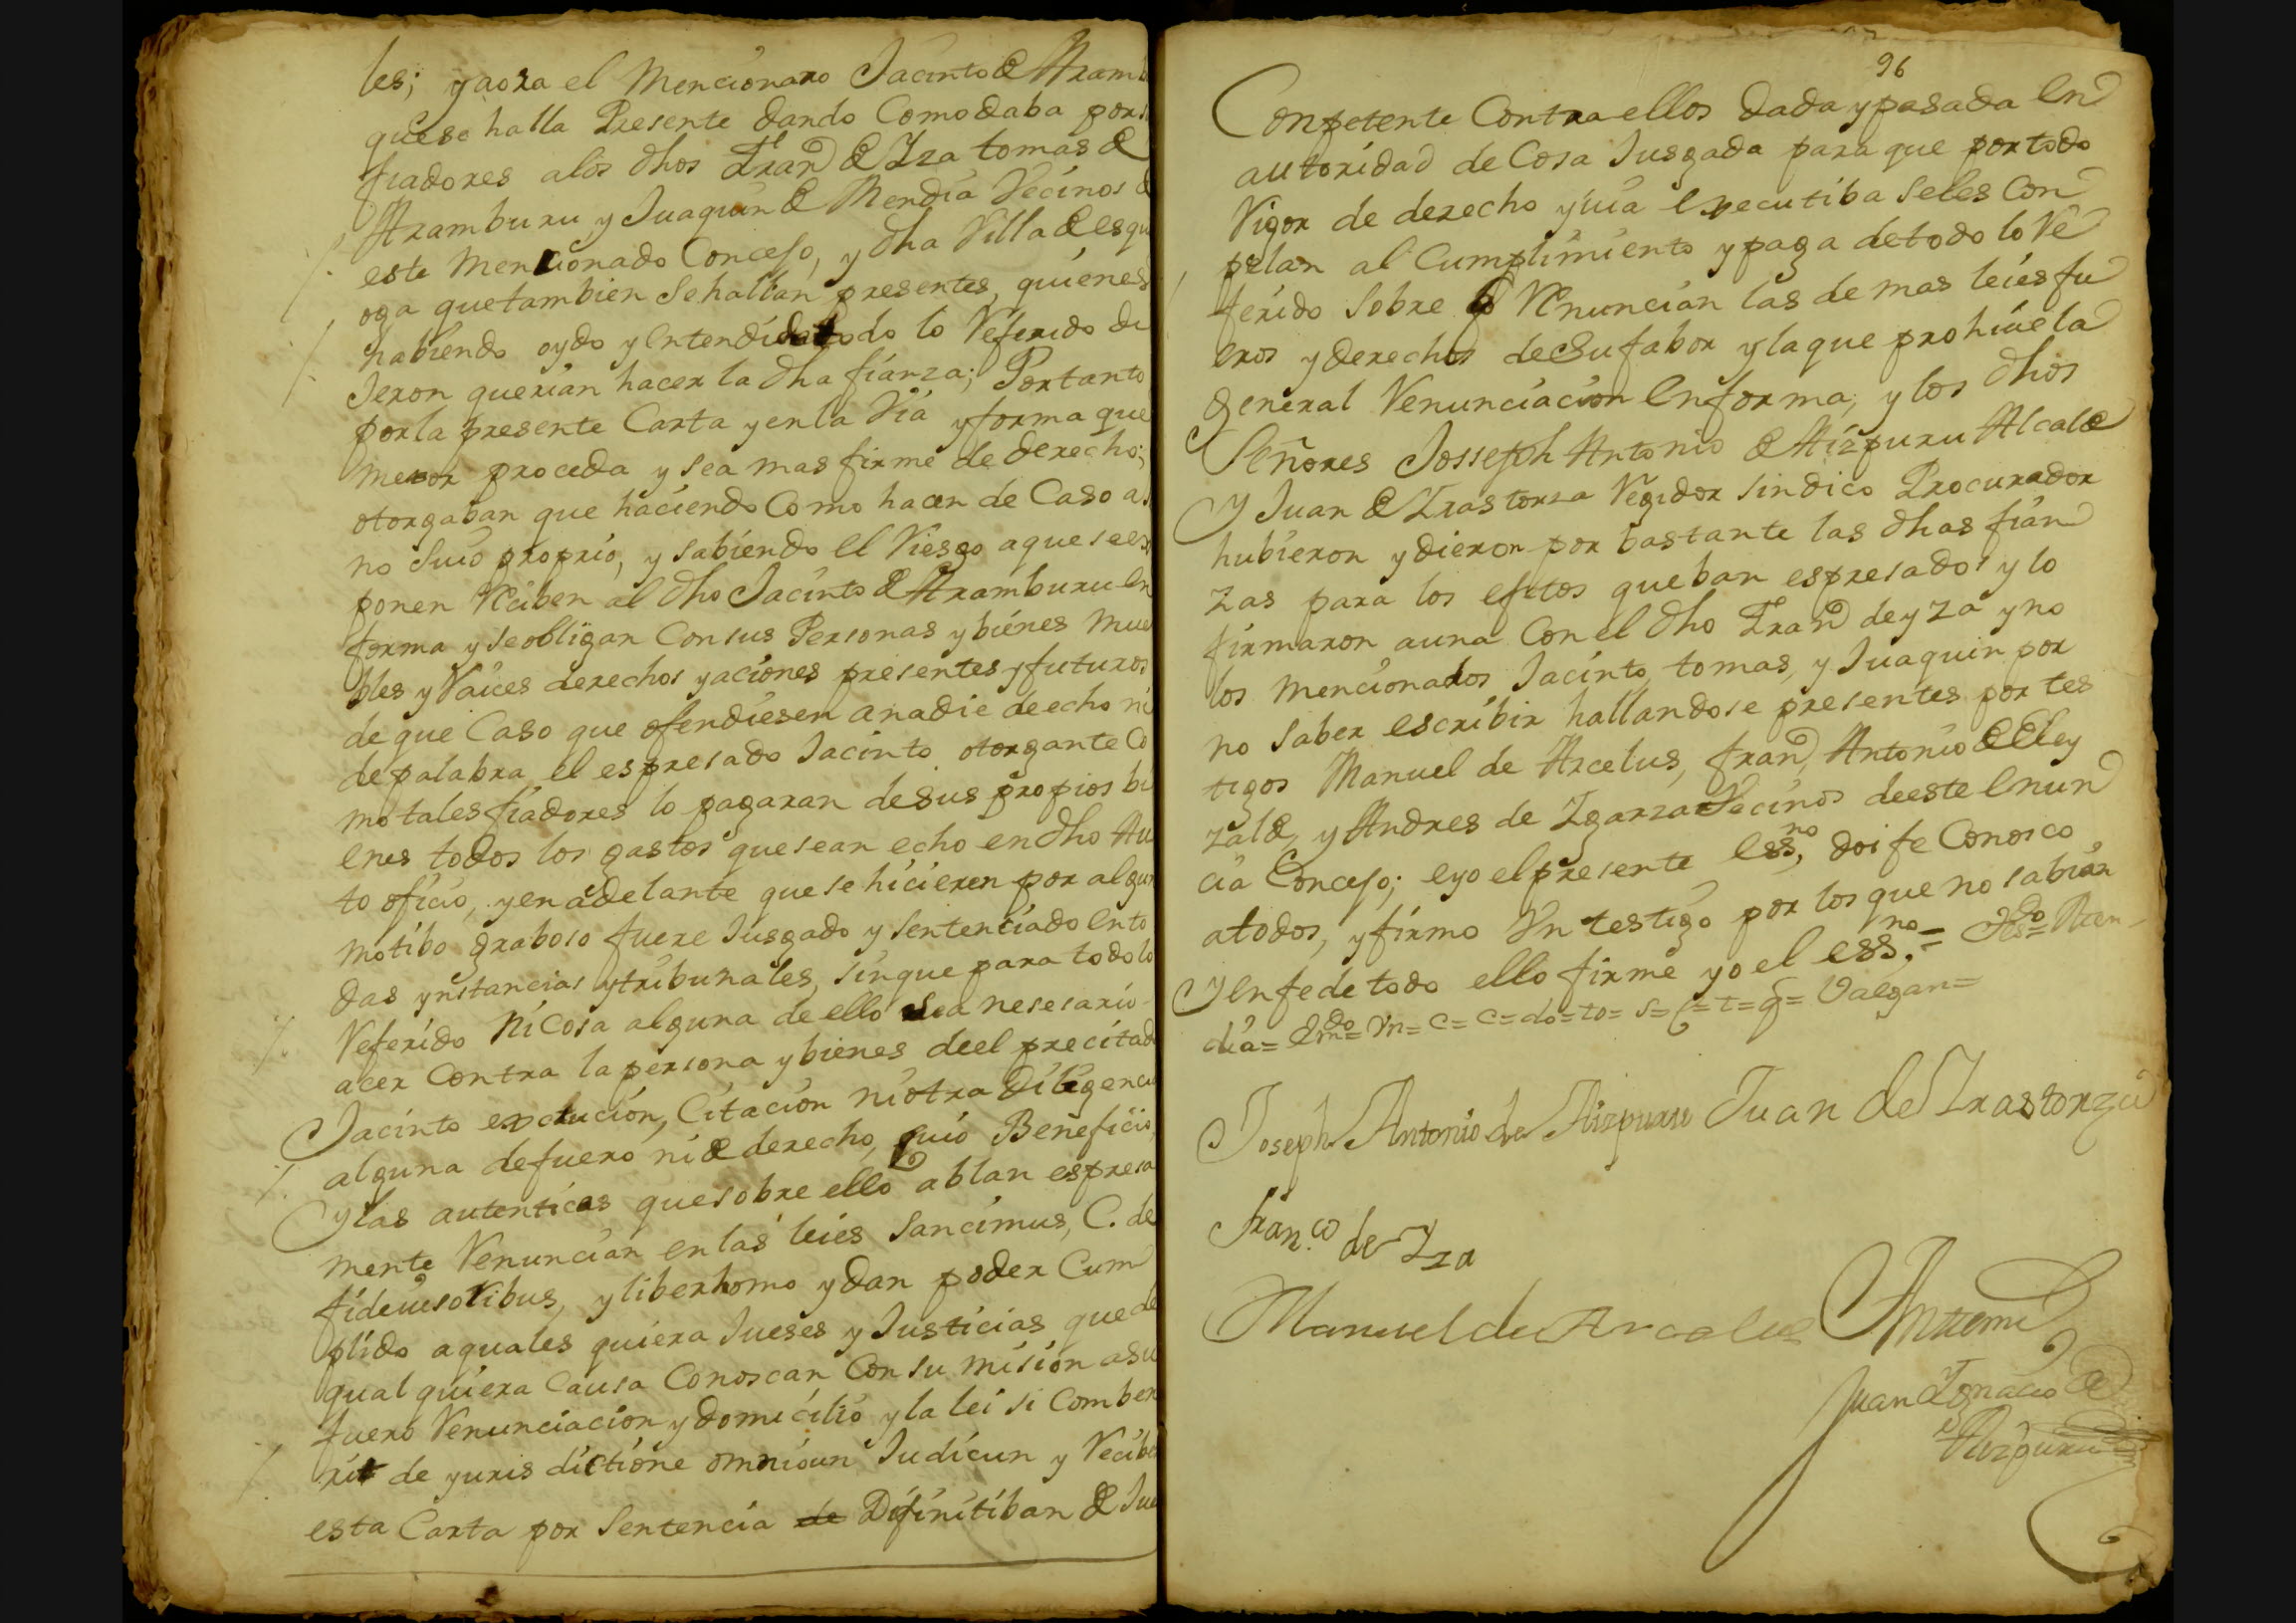 les; y aora el Mencionado Jacinto de Aramb
que se halla Presente dando Como daba por s
fiadores a los dhos Fran de Yza tomas de
Aramburu, y Juaquin de Mendia Vecinos d
este Mencionado Concejo, y dha Villa de esqu
oga que tambien Se hallan presentes, quienes
habiendo oydo y entendido todo lo Referido di
Jeron querian hacer la dha fianza; Por tanto
por la presente Carta y en la Via y forma que
mexor proceda y sea mas firme de derecho;
otorgaban que haciendo Como hacen de Caso a
no Suio proprio, y sabiendo el Riesgo a que se ex
ponen Reciben al dho Jacinto de Aramburu en
forma y se obligan Con sus Personas y bienes mue
bles y Raices derechos y aciones presentes y futuros
de que Caso que ofendiesen a nadie de echo ni
de palabra el espresado Jacinto otorgante Co
mo tales fiadores lo pagaran de sus propios bi
enes todos los gastos que sean echo en dho Au
to oficio, y en adelante que se hicieren por algun
motibo graboso fuere Jusgado y Sentenciado en to
das ynstancias y tribunales, sin que para todo lo
Referido Ni Cosa alguna de ello Sea nesesario
acer Contra la persona y bienes de el precitad
Jacinto execucion, Citacion ni otra Diligencia
alguna de fuero ni de derecho, Cuio Beneficio,
y las autenticas que sobre ello ablan espresa
mente Renuncian en las leies Sancimus, C. de
fideiusoribus, y liberhomo y dan poder Cum
plido a quales quiera Jueses y Justicias que de
qual quiera Causa Conoscan Con su mision a su
fuero Renunciacion y domicilio y la lei si Comben
rit de yuris dictione omnioun Judicun y Recibe
esta Carta por Sentencia de Difinitiban de Jue
96
Conpetente Contra ellos dada y pasada en
autoridad de Cosa Jusgada para que por todo
Vigor de derecho y via executiba Seles Con
pelan al Cumplimiento y paga de todo lo Re
ferido Sobre Renuncian las de mas leies fu
eros y derechos de Su fabor y la que prohive la
general Renunciacion en forma; y los dhos
Señores Josseph Antonio de Aizpuru Alcalde
Y Juan de Yrastorza Regidor Sindico Procurador
hubieron y dieron por bastante las dhas fian
zas para los efetos que ban espresados y lo
firmaron a una Con el dho Fran de yza y no
los mencionados Jacinto, tomas, y Juaquin por
no Saber escribir hallandose presentes por tes
tigos Manuel de Arcelus, fran Antonio de Eley
zalde, y Andres de Ygarza Vecinos de este enun
cia Concejo; e yo el presente ess.no doi fe Conosco
a todos, y firmo Un testigo por los que no sabian
Y en fe de todo ello firme yo el ess.no =
dia= Emdo= Vn= c= c= do= to= s= = t= q= Valgan=
Joseph Antonio de Aizpuru Juan de Yrastorza
Fran.co de Yza
Manuel de Arcelus Antemi
Juan Ygnacio de
Aizpuru